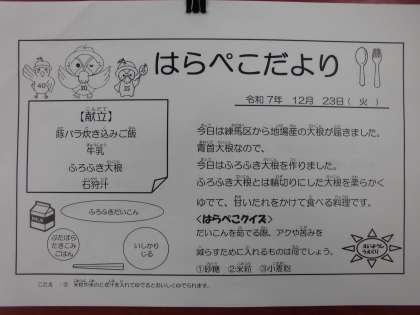 はらぺこだより
令和7年 12月 23日(火)
【献立】
豚バラ炊き込みご飯
牛乳
ふろふき大根
石狩汁
今日は練馬区から地場産の大根が届きました。
青首大根なので、
今日はふろふき大根を作りました。
ふろふき大根とは輪切りにした大根を柔らかく
ゆでて、甘いたれをかけて食べる料理です。
<はらぺこクイズ>
だいこんを茹でる際、アクや苦みを
減らすために入れるものは何でしょう。
①砂糖 ②米粒 ③小麦粉
ふろふきだいこん
ぶたばら
たきこみ
ごはん
いしかり
じる
こたえ:②